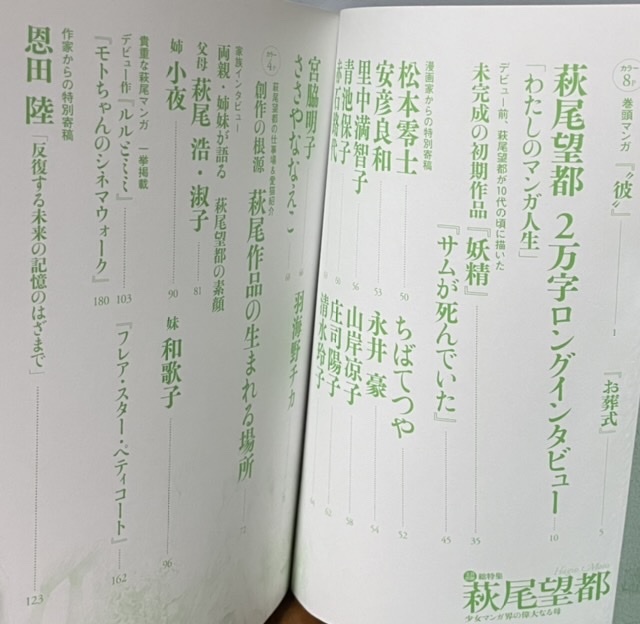 カラー8P 巻頭マンガ 『“彼”』 1
『お葬式』 5
萩尾望都 2万字ロングインタビュー 10
「わたしのマンガ人生」
デビュー前、萩尾望都が10代の頃に描いた
未完成の初期作品『妖精』 35
『サムが死んでいた』 45
漫画家からの特別寄稿
松本零士 50
ちばてつや 52
安彦良和 53
永井 豪 54
里中満智子 56
山岸凉子 58
青池保子 60
庄司陽子 62
清水玲子
宮脇明子
羽海野チカ
ささやななえこ
カラー4P 萩尾望都の仕事場&愛猫紹介
創作の根源 萩尾作品の生まれる場所
家族インタビュー
両親・姉妹が語る 萩尾望都の素顔
父母 萩尾 浩・淑子 81
姉 小夜 90
妹 和歌子 96
貴重な萩尾マンガ 一挙掲載
デビュー作『ルルとミミ』 103
『モトちゃんのシネマウォーク』 180
『フレア・スター・ペティコート』 162
作家からの特別寄稿
恩田 陸 「反復する未来の記憶のはざまで」 123
総特集
Hagio Moto
萩尾望都
少女マンガ界の偉大なる母